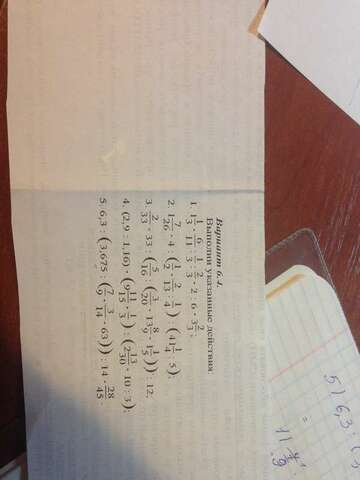 Вариант 6.4.
Выполни указанные действия:
1. 1 1/3 · 6/11 : 1/3 : 2/3 · 2 : 6 · 3 2/3;
2. 1 7/26 · 4 : (1/2 · 2/13 · 1/4) : (41 1/4 : 5);
3. 2/33 · 33 : (5/16 : (3/20 · 13 8/9 · 1 1/5)) : 12;
4. (2,9 : 1,16) · (9 11/15 : 1/3) : (2 13/30 · 10 : 3);
5. 6,3 : (3,675 : (7/9 · 3/14 · 63)) : 14 · 28/45.
5) 6,3 : (
=
1) 7/9